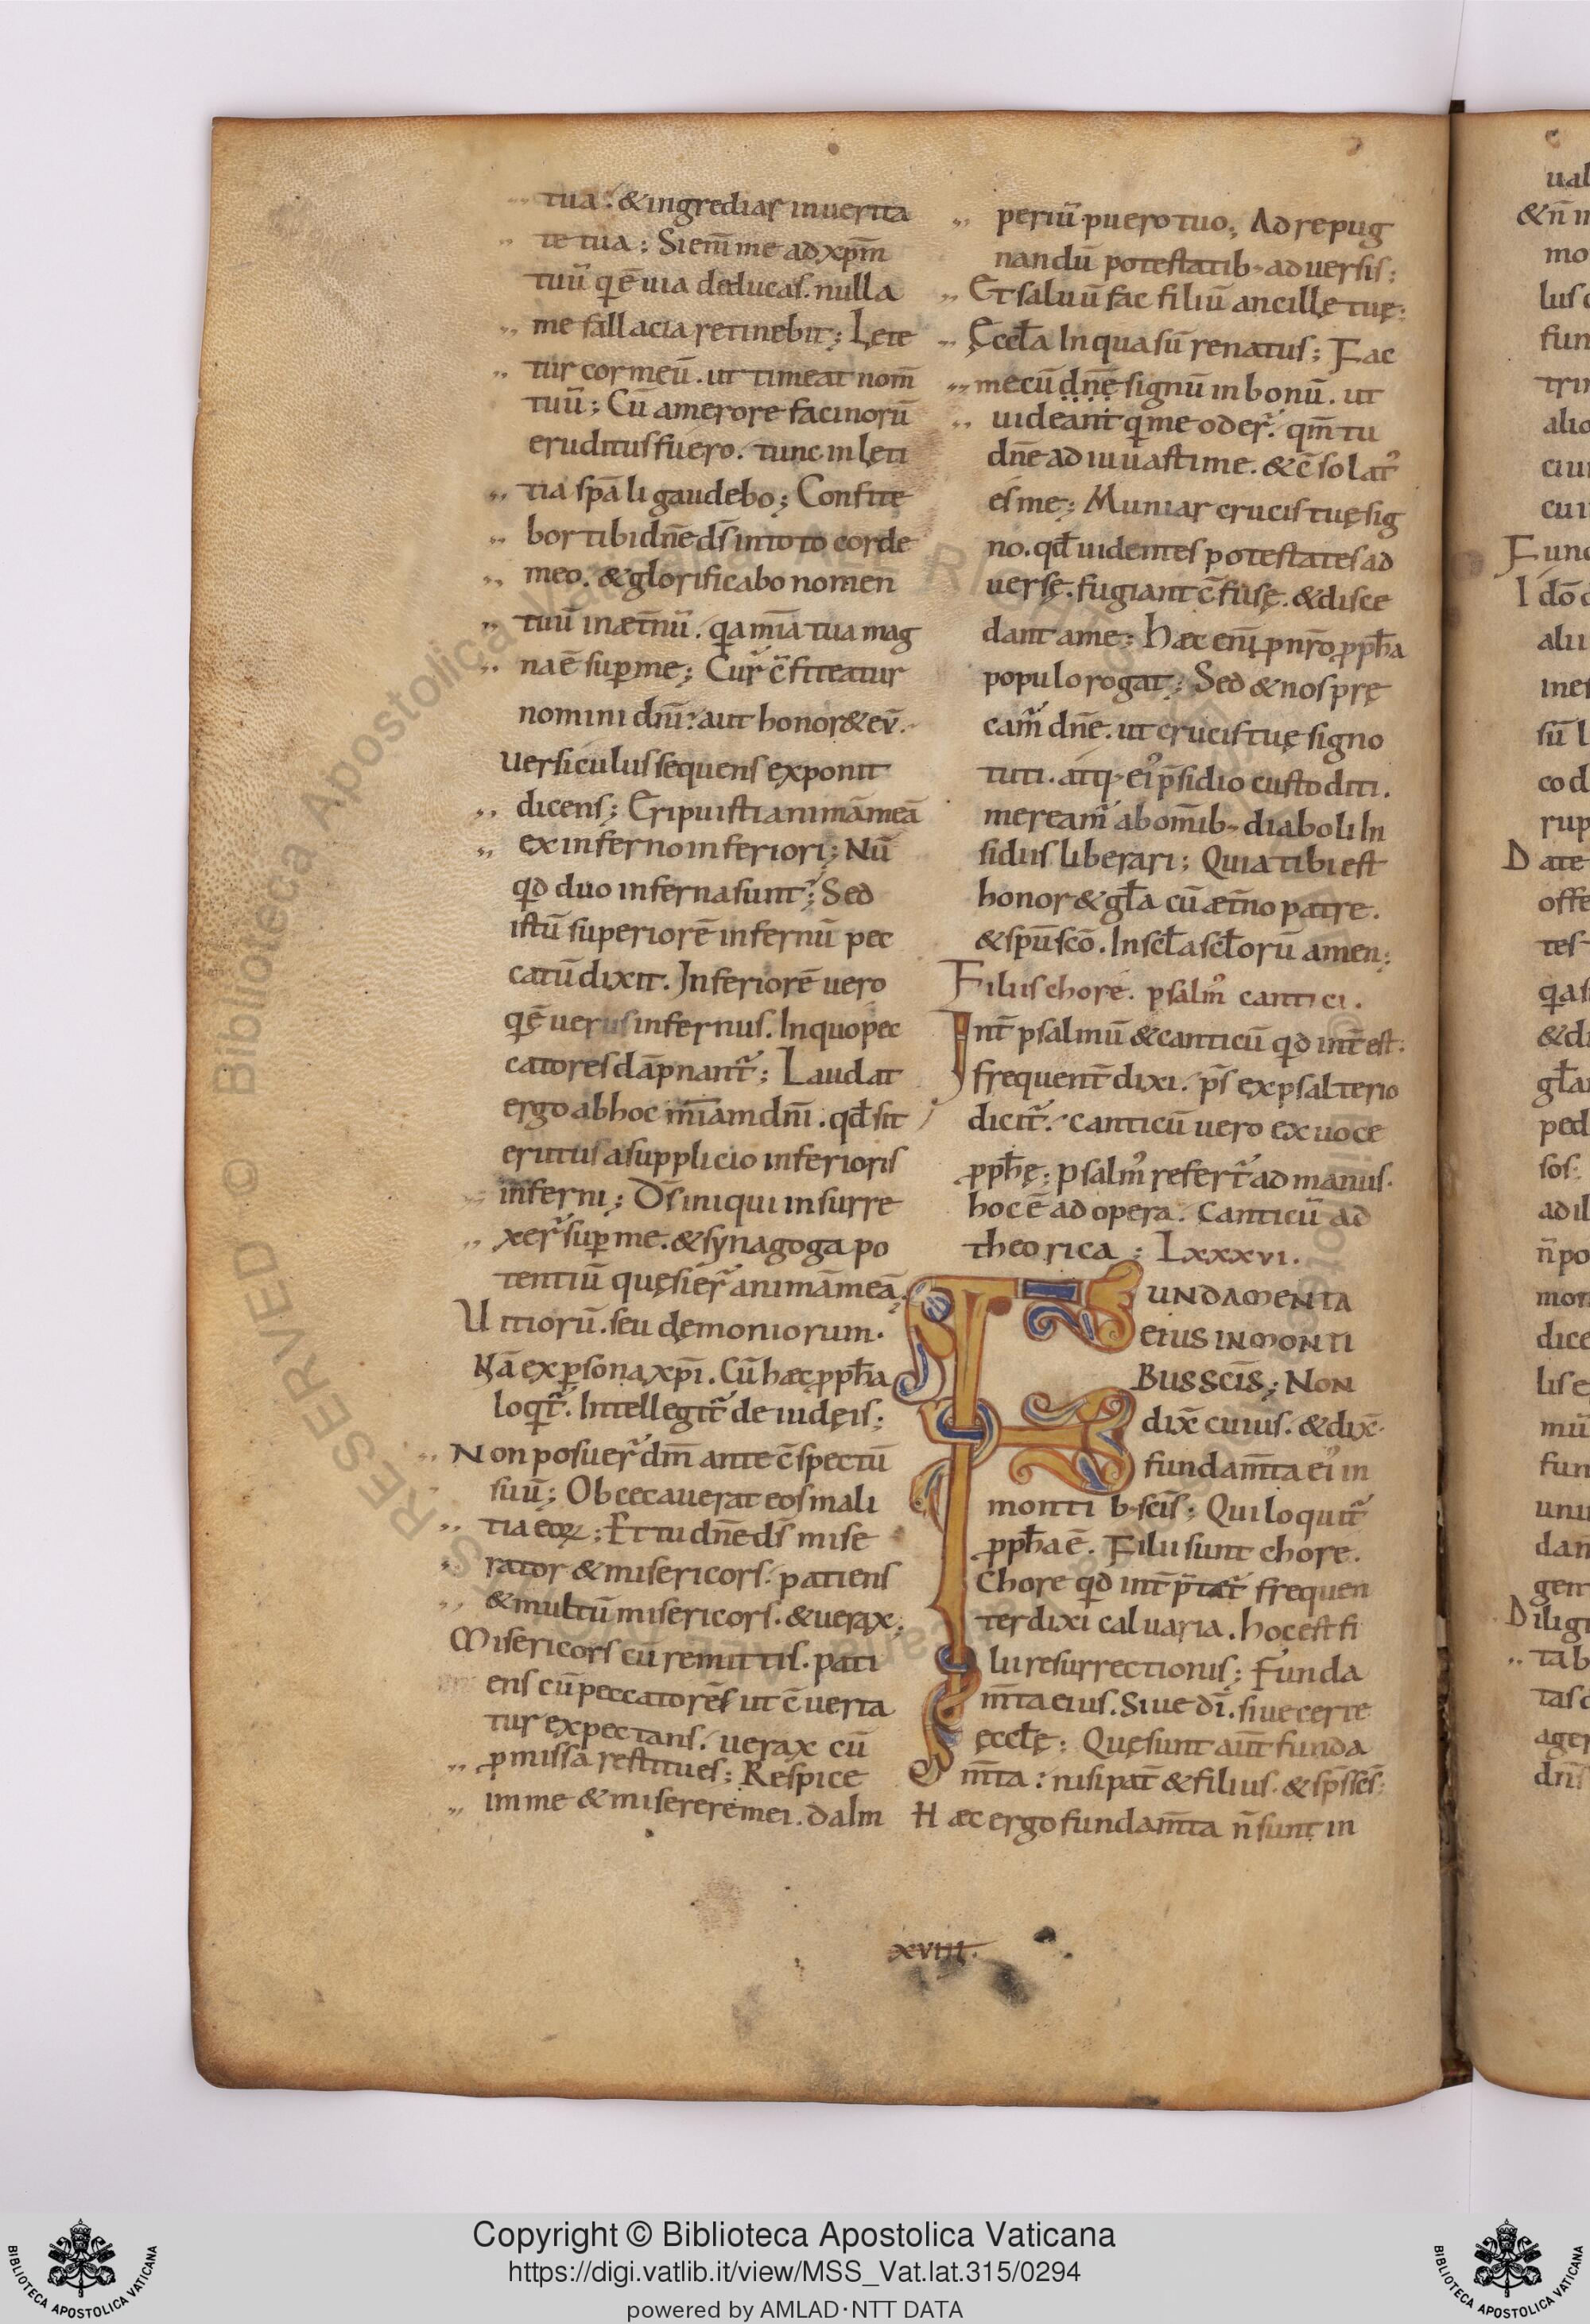 tua: & ingrediar in uerita
te tua; Si eni̅ me ad xp̅m
tuu̅ q̇ e̅ uia deducas. nulla
me fallacia retinebit; Lęte
tur cor meu̅. ut timeat nom̅
tuu̅; Cu̅ a merore facinoru̅
eruditus fuero. tunc in lęti
tia sp̅a̅li gaudebo; Confite
bor tibi dn̅e ds̅ in toto corde
meo. & glorificabo nomen
tuu̅ in æt̅nu̅. q̇a mi̅a tua mag
na e̅ suꝑ me; Cur̃ c̅fiteatur
nomini dn̅i: aut honor& eu̅.
uersiculus sequens exponit
dicens; Eripuisti anima̅ mea̅
ex inferno inferiori; Nu̅
qd duo inferna sunt; Sed
istu̅ superiore̅ infernu̅ pec
catu̅ dixit. Inferiore̅ uero
q̇ e̅ uerus infernus. In quo pec
catores da̅pnant̃; Laudat
ergo ab hoc mi̅am dn̅i. qđ sit
erutus a supplicio inferioris
inferni; Ds̅ iniqui insurre
xer̃ suꝑ me. & synagoga po
tentiu̅ quęsier̃ anima̅ mea̅;
Uitioru̅. seu demoniorum.
Na̅ ex ꝑsona xp̅i. Cu̅ hæc ꝓph̅a
loq̇t̃. Intellegit̃ de iudęis;
Non posuer̃ dm̅ ante c̅spectu̅
suu̅; Obcecauerat eos mali
tia eoꝝ; Et tu dn̅e ds̅ mise
rator & misericors. patiens
& multu̅ misericors. & uerax;
Misericors cu̅ remittis. pati
ens cu̅ peccatore̅s ut c̅uerta
tur expectans. uerax cu̅
ꝓmissa restitues; Respice
im me & miserere mei. da im
periu̅ puero tuo; Ad repug
nandu̅ potestatib; aduersis;
Et saluu̅ fac filiu̅ ancillę tuę;
Ęccl̅a In qua su̅ renatus; Fac
mecu̅ dn̅ę signu̅ in bonu̅. ut
uideant q̇ me oder̃. qm̅ tu
dn̅e adiuuasti me. & c̅solat᾽
es me; Muniar crucis tuę sig
no. qđ uidentes potestates ad
uersę. fugiant c̅fusę. & disce
dant a me; Hæc eni̅ ꝑ nr̅o ꝓph̅a
populo rogat; Sed & nos pre
cam̃ dn̅e. ut crucis tuę signo
tuti. atq; ei᾽ p̅sidio custoditi.
meream̃ ab om̅ib; diaboli In
sidiis liberari; Quia tibi est
honor & gl̅a cu̅ æt̅no patre.
& spu̅ sco̅. In scl̅a scl̅oru̅ amen;
Filiis chore. psalm᾽ cantici.
Int̅ psalmu̅ & canticu̅ qd int̅est.
frequent̅ dixi. ps̅ ex psalterio
dicit̃. canticu̅ uero ex uoce
ꝓph̅ę; psalm᾽ refert̃ ad manus.
hoc e̅ ad opera. Canticu̅ ad
theorica; Lxxxvi.
FUNDAMENTA
EIUS IN MONTI
BUS SCI̅S; NON
dix̅ cuius. & dix̅.
fundam̅ta ei᾽ in
montib; sci̅s; Qui loquit̃
ꝓph̅a e̅. Filii sunt chore.
Chore qd int̅p̅tat̃ frequen
ter dixi caluaria. hoc est fi
lii resurrectionis; Funda
m̅ta eius. Siue di̅. siue certe
ęccl̅ę; Quę sunt aut̅ funda
m̅ta: nisi pat̅ & filius. & sps̅ scs̅;
Hæc ergo fundam̅ta n̅ sunt in
xviii.
Copyright © Biblioteca Apostolica Vaticana
https://digi.vatlib.it/view/MSS_Vat.lat.315/0294
powered by AMLAD·NTT DATA
BIBLIOTECA APOSTOLICA VATICANA
BIBLIOTECA APOSTOLICA VATICANA